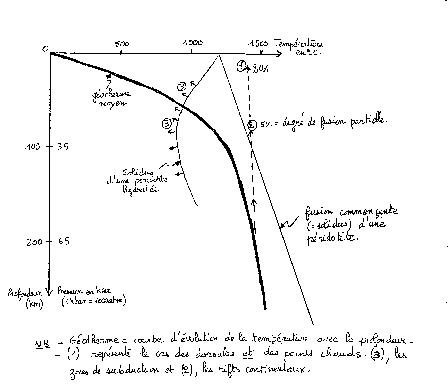 0 500 1000 1500 Température
en °C.
géotherme
moyen
① 20%
②
③
② 5% = degré de fusion partielle.
100 35
Solidus
d'une péridotite
hydratée.
fusion commençante
(= solidus) d'une
péridotite.
200 65
Profondeur
(km)
Pression en kbar
NB - Géotherme = courbe d'évolution de la température avec la profondeur.
- (1) représente le cas des dorsales et des points chauds. (3), les
zones de subduction et (2), les rifts continentaux.